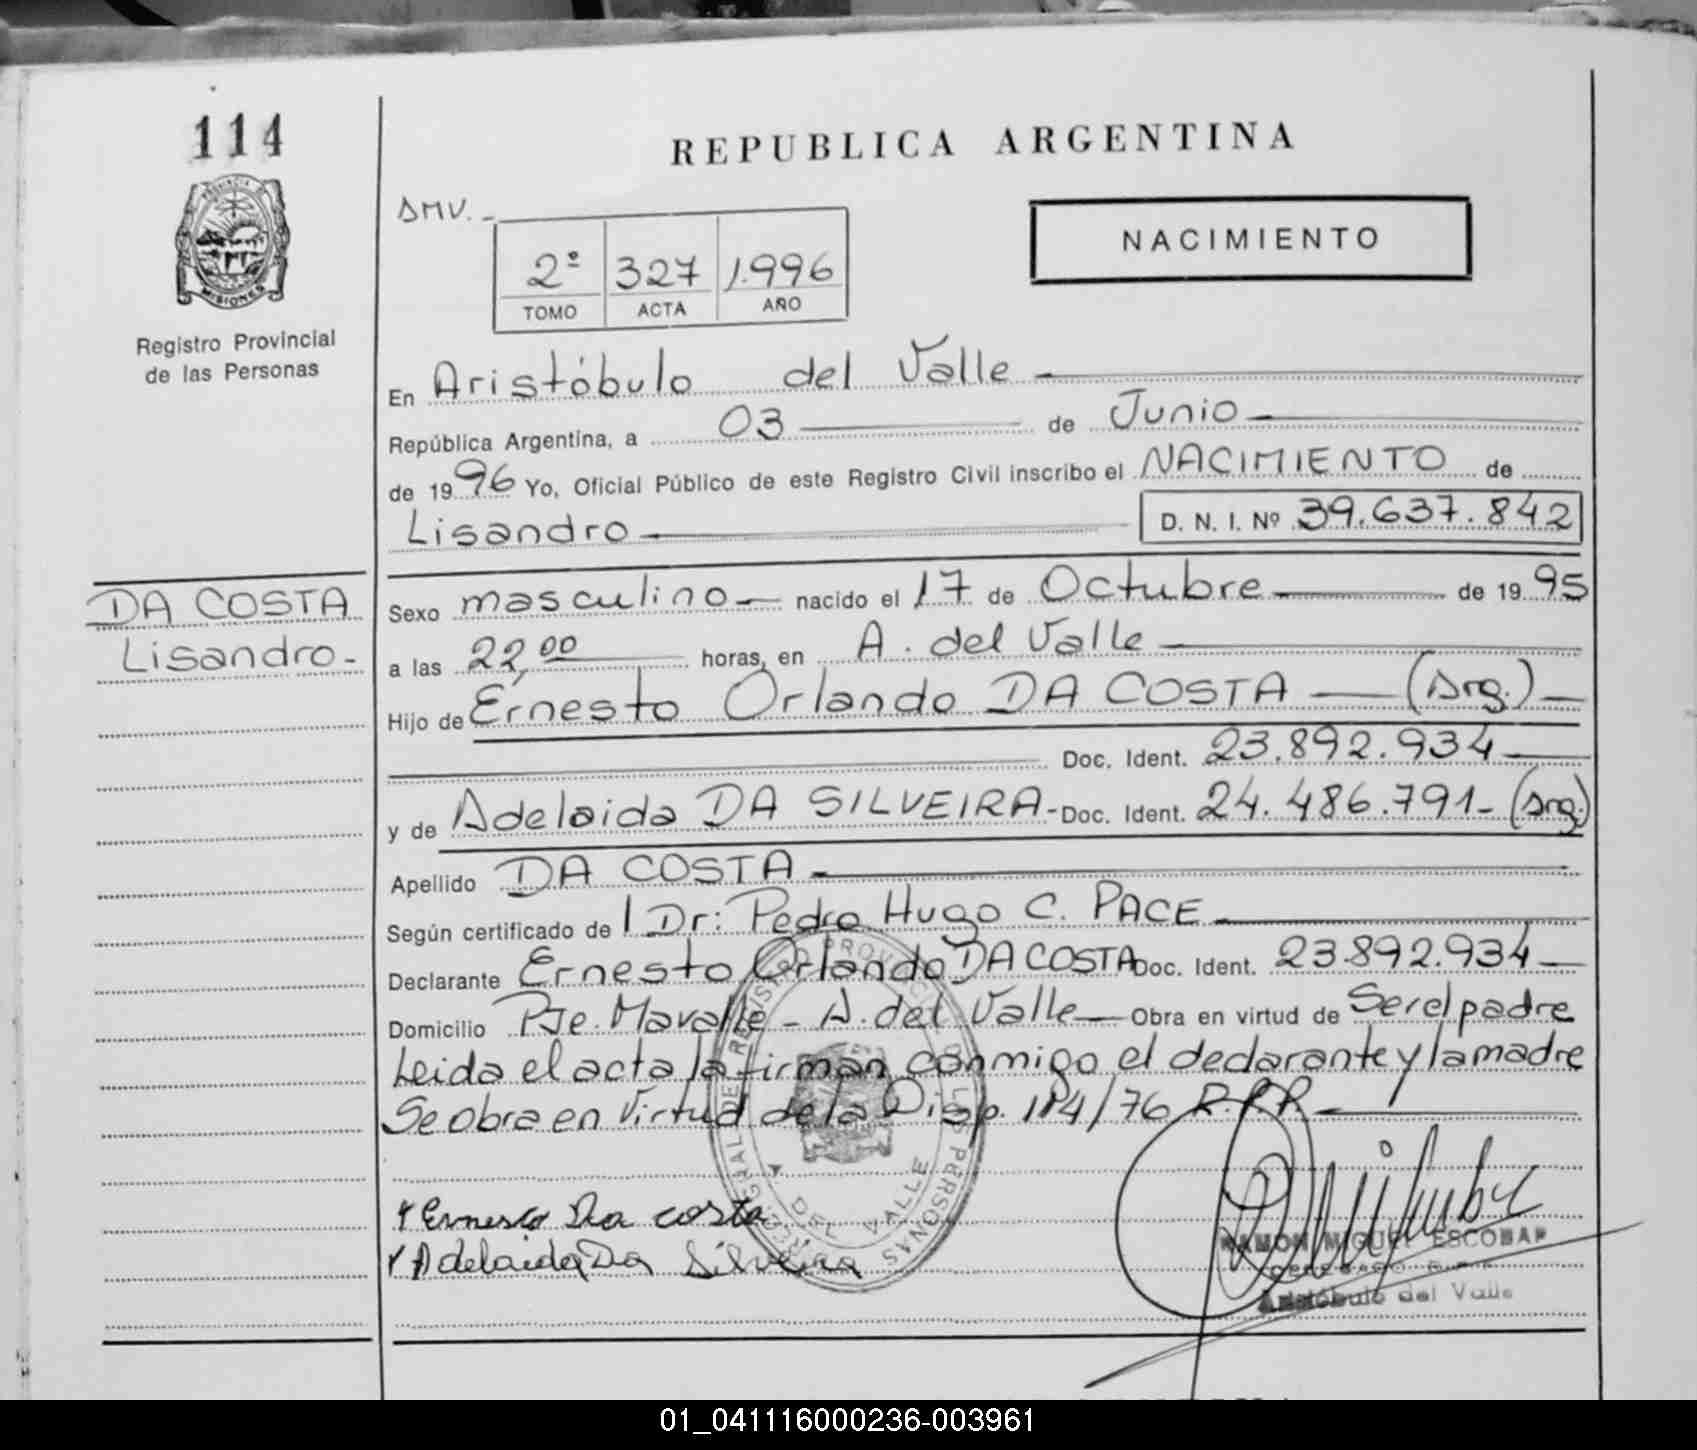 114
PROVINCIA DE
MISIONES
Registro Provincial
de las Personas
REPUBLICA ARGENTINA
NACIMIENTO
2º 327 1.996
TOMO ACTA AÑO
En Aristóbulo del Valle
República Argentina, a 03 de Junio
de 1996 Yo, Oficial Público de este Registro Civil inscribo el NACIMIENTO de
Lisandro D. N. I. Nº 39.637.842
DA COSTA
Lisandro-
Sexo masculino nacido el 17 de Octubre de 1995
a las 22,00 horas, en A. del Valle
Hijo de Ernesto Orlando DA COSTA (Arg.)
Doc. Ident. 23.892.934
y de Adelaida DA SILVEIRA- Doc. Ident. 24.486.791- (Arg.)
Apellido DA COSTA
Según certificado de Dr: Pedro Hugo C. PACE
Declarante Ernesto Orlando DA COSTA Doc. Ident. 23.892.934
Domicilio Pje. Mavalle - A. del Valle Obra en virtud de Ser el padre
Leida el acta la firman conmigo el declarante y la madre
Se obra en Virtud de la Disp. 114/76 R.P.P.
Ernesto Da costa
Adelaida Da Silveira
DEL VALLE
RAMON MIGUEL ESCOBAR
Aristóbulo del Valle
01_041116000236-003961